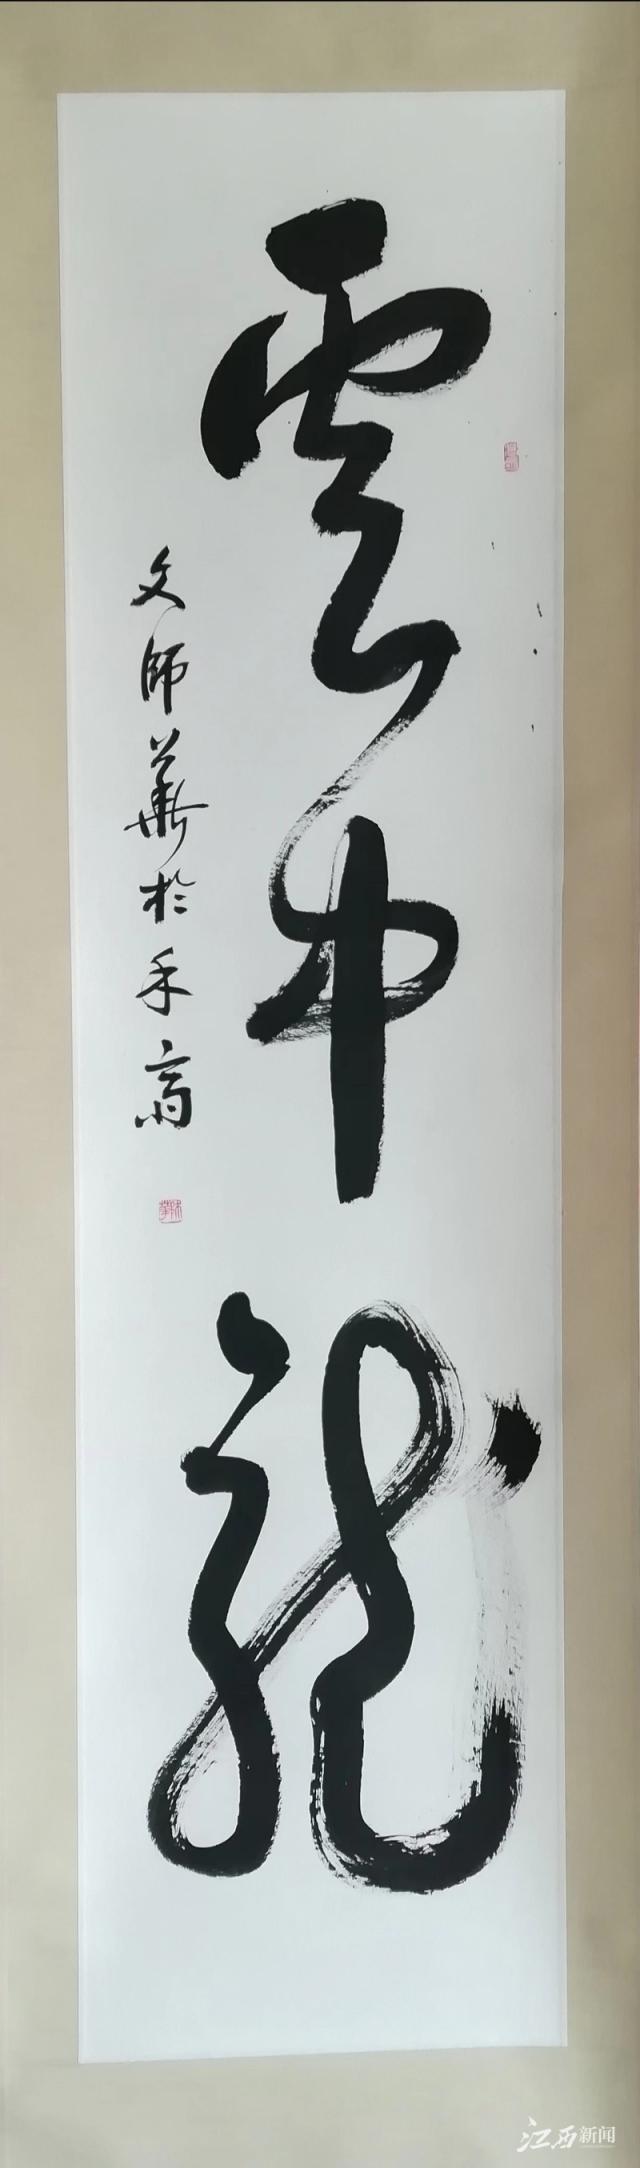 雲中龍
文師華於禾齋
江西新闻